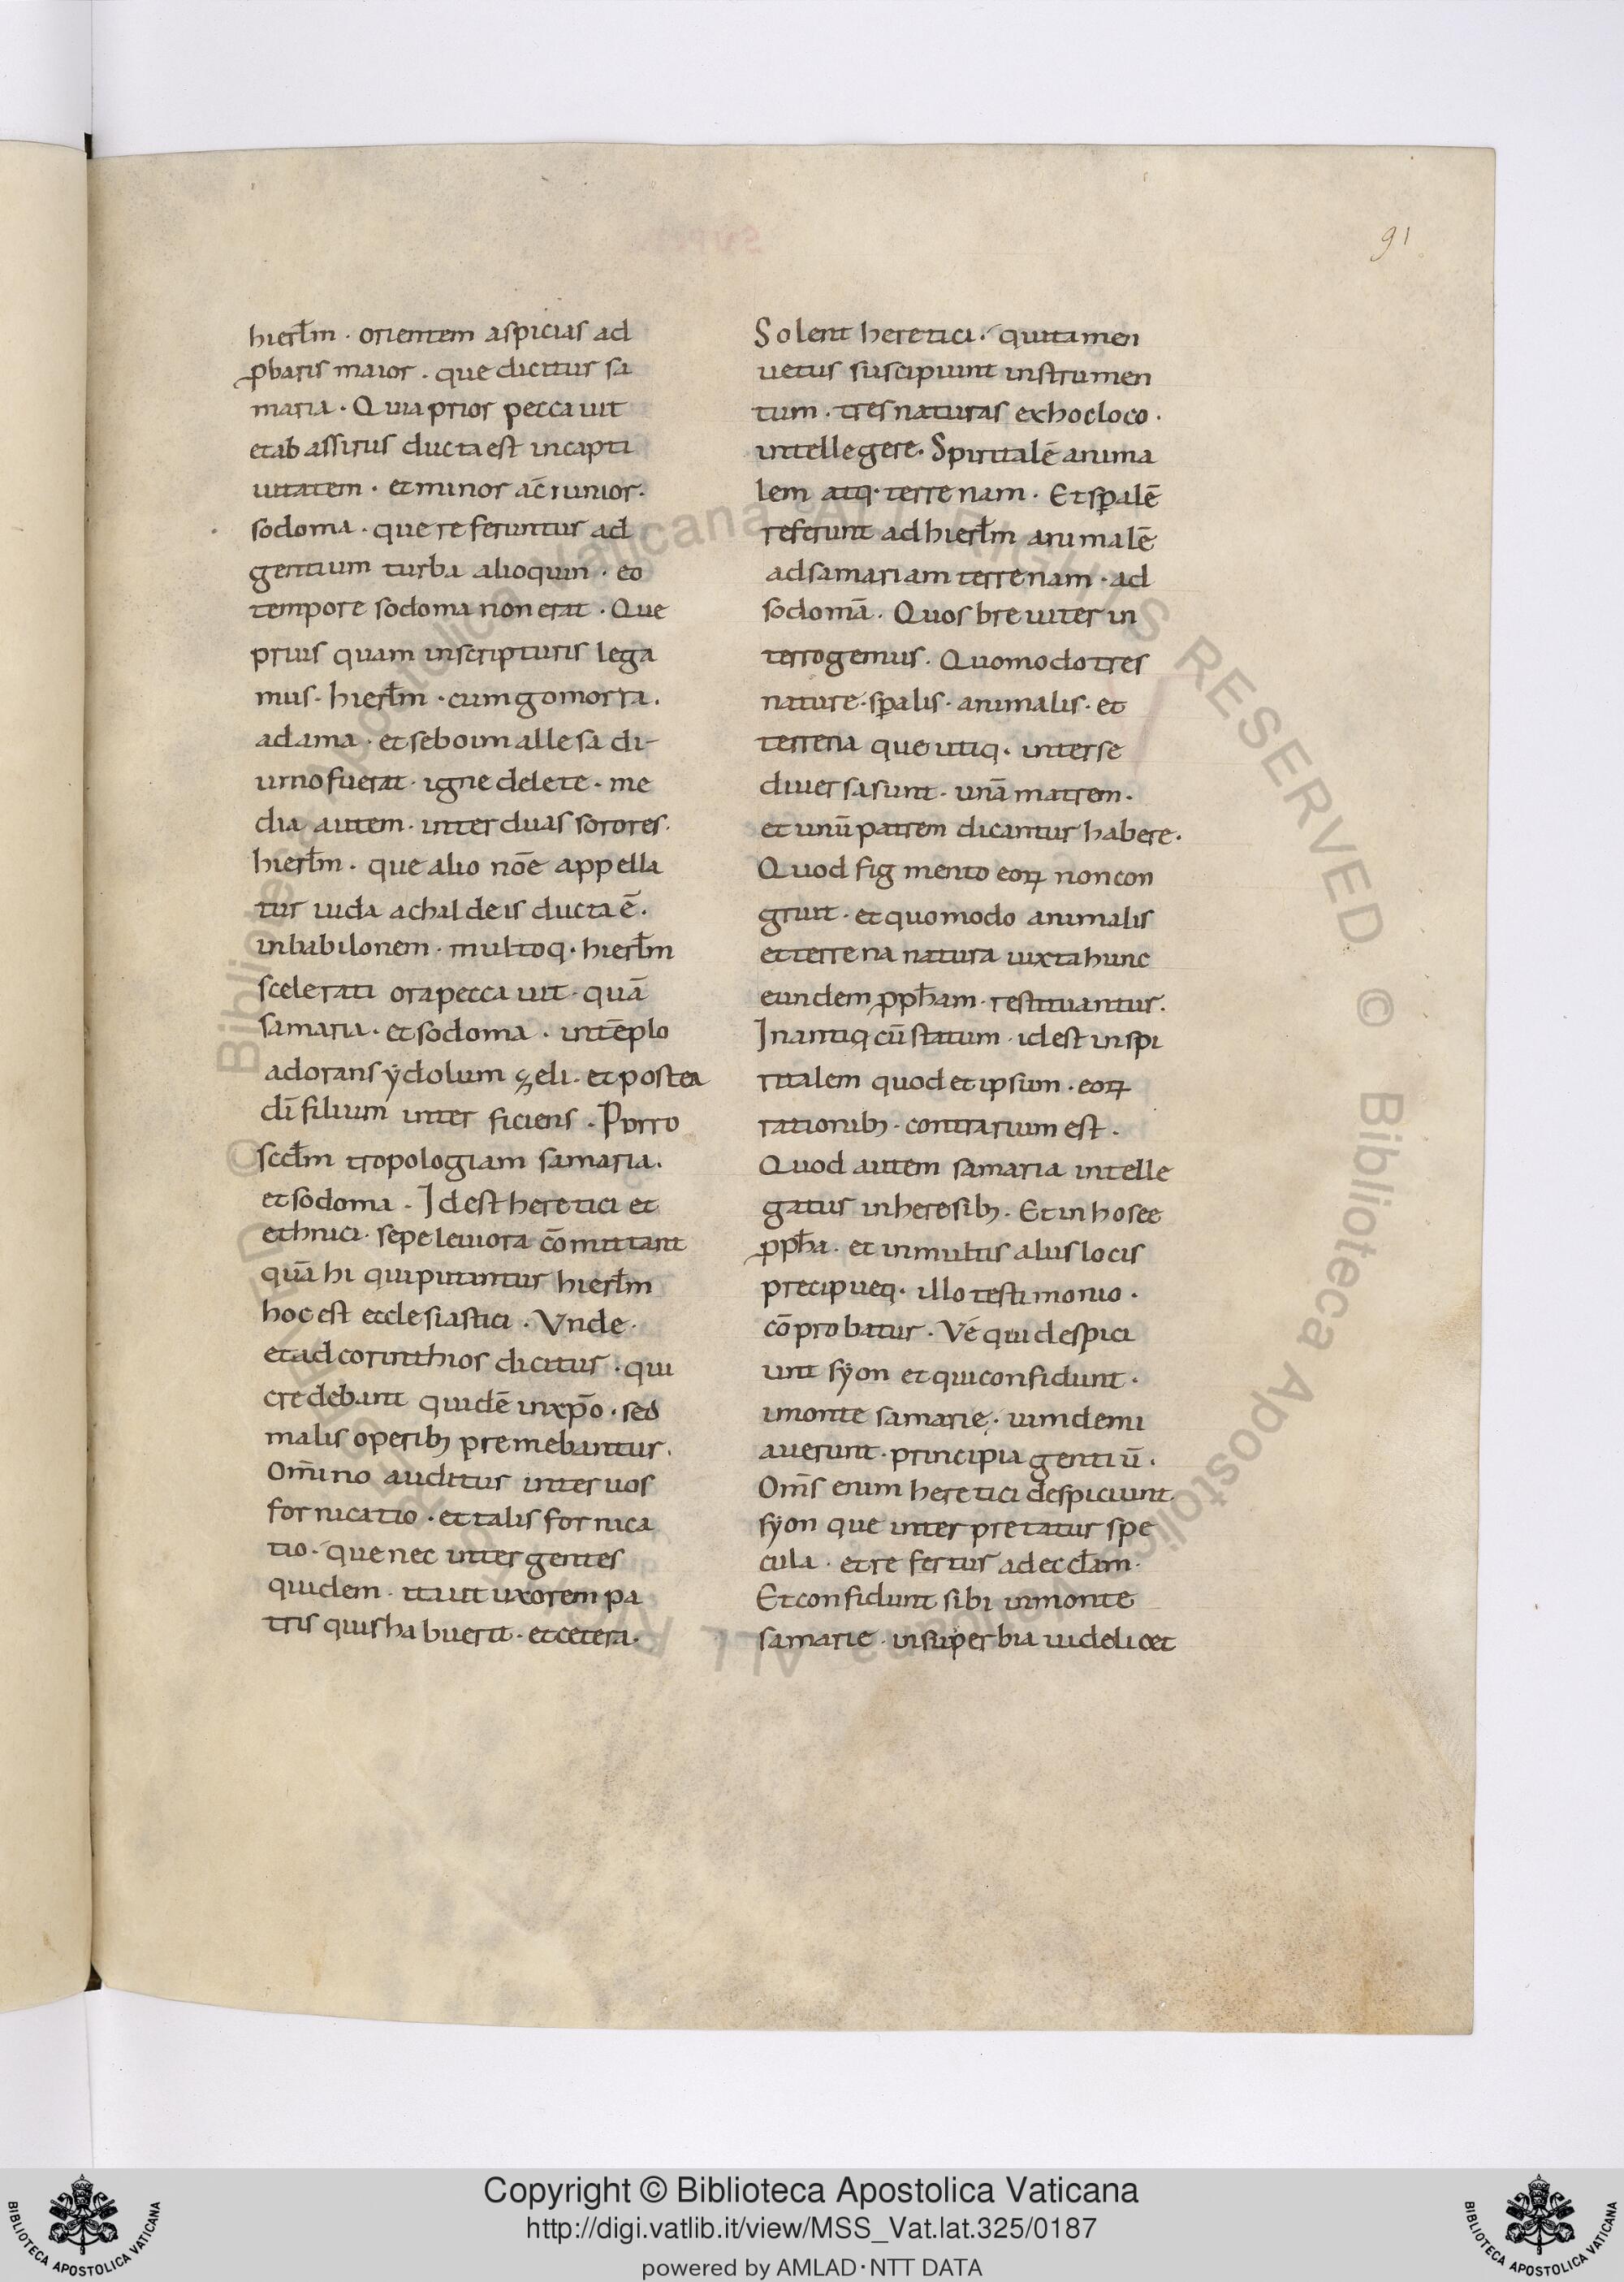 91
hierłm · orientem aspicias ad
ꝓbaris maior . que dicitur sa
maria · Quia prior peccauit
et ab assiriis ducta est in capti
uitatem · et minor ac̄ iunior.
sodoma · que referuntur ad
gentium turba alioquin · eo
tempore sodoma non erat · Que
prius quam in scripturis lega
mus · hierłm · cum gomorra.
adama · et seboim allesa di-
uino fuerat · igne delete · me
dia autem · inter duas sorores·
hierłm · que alio nōe appella
tur iuda a chaldeis ducta ē.
in babilonem · multoq· hierłm
scelerati ora peccauit · quā
samaria · et sodoma · in tēplo
adorans ydolum zeli · et postea
dī filium inter ficiens · Porro
scdłm tropologiam samaria.
et sodoma . Id est heretici et
ethnici · sepe leuiora cōmittant
quā hi qui putantur hierłm
hoc est ecclesiastici · Vnde·
et ad corinthios dicitur · qui
credebant quidē in xp̄o · sed
malis operibꝫ premebantur.
Om̄ino auditur inter uos
fornicatio · et talis fornica
tio · que nec inter gentes
quidem · ita ut uxorem pa
tris quis habuerit · et cetera·
Solent heretici · qui tamen
uetus suscipiunt instrumen
tum · tres naturas ex hoc loco ·
intellegere. Spiritalē anima
lem atq· terrenam · Et sp̄alē
referunt ad hierłm animalē
ad samariam terrenam · ad
sodomā . Quos breuiter in
terrogemus . Quomodo tres
nature · sp̄alis · animalis · et
terrena que utiq· inter se
diuersa sunt · unā matrem ·
et unū patrem dicantur habere.
Quod figmento eoꝝ non con
gruit · et quomodo animalis
et terrena natura iuxta hunc
eundem ꝓpħam · restituantur.
In antiqcū statum · id est in spi
ritalem quod et ipsum · eoꝝ
rationibꝫ · contrarium est .
Quod autem samaria intelle
gatur in heresibꝫ · Et in hosee
ꝓpħa · et in multis aliis locis
precipueq· illo testimonio ·
cōprobatur . Vę qui despici
unt syon et qui confidunt ·
imonte samarię · uindemi
auerunt · principia gentiū .
Om̄s enim heretici despiciunt
syon que interpretatur spe
cula · et refertur ad eccłam·
Et confidunt sibi in monte
samarie · in superbia uidelicet
Copyright © Biblioteca Apostolica Vaticana
http://digi.vatlib.it/view/MSS_Vat.lat.325/0187
powered by AMLAD·NTT DATA
BIBLIOTECA APOSTOLICA VATICANA
BIBLIOTECA APOSTOLICA VATICANA